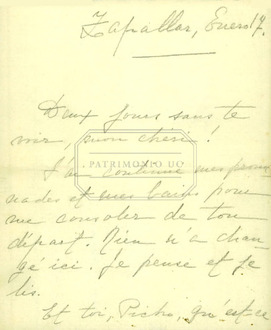 Zapallar, Enero 17.
Deux jours sans te
voir, mon chéri!
PATRIMONIO UC
J'ai continué mes prome
nades et mes bains pour
me consoler de ton
départ. Rien n'a chan
gé ici. Je pense et je
lis.
Et toi, Picho, qu'est-ce